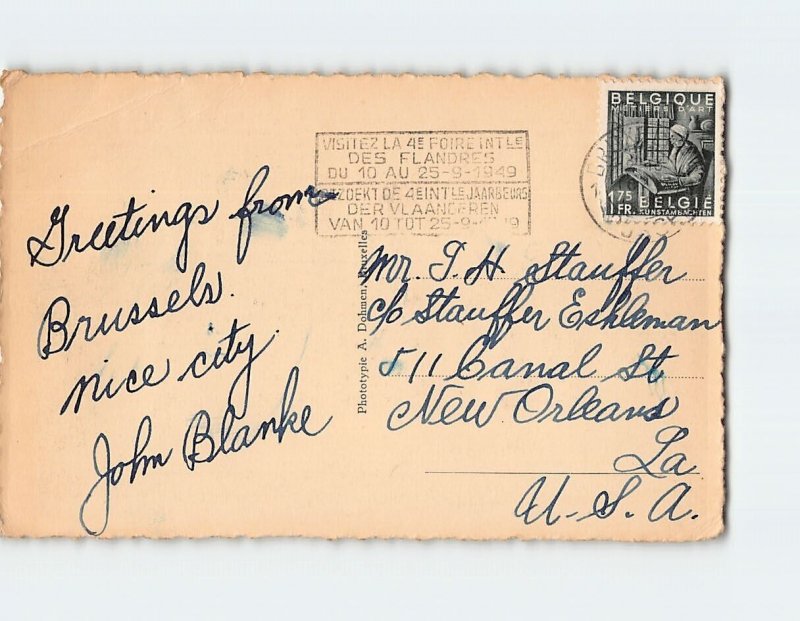 Greetings from
Brussels.
nice city.
John Blanke
VISITEZ LA 4E FOIRE INTLE
DES FLANDRES
DU 10 AU 25-9-1949
BEZOEKT DE 4E INTLE JAARBEURS
DER VLAANDEREN
VAN 10 TOT 25-9-1949
BELGIQUE
METIERS D'ART
1.75
FR.
BELGIË
KUNSTAMBACHTEN
Phototypie A. Dohmen, Bruxelles
Mr. T. H Stauffer
c/o Stauffer Eshleman
511 Canal St
New Orleans
La
U. S. A.